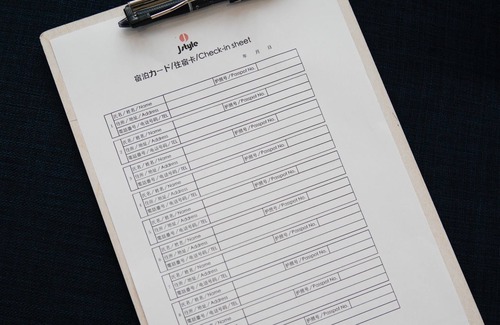 Jstyle
宿泊カード/住宿卡/Check-in sheet
年 月 日
氏名/姓名/Name 护照号/Passpot No.
住所/地址/Address
電話番号/电话号码/TEL
氏名/姓名/Name 护照号/Passpot No.
住所/地址/Address
電話番号/电话号码/TEL
氏名/姓名/Name 护照号/Passpot No.
住所/地址/Address
電話番号/电话号码/TEL
氏名/姓名/Name 护照号/Passpot No.
住所/地址/Address
電話番号/电话号码/TEL
氏名/姓名/Name 护照号/Passpot No.
住所/地址/Address
電話番号/电话号码/TEL
氏名/姓名/Name 护照号/Passpot No.
住所/地址/Address
電話番号/电话号码/TEL
氏名/姓名/Name 护照号/Passpot No.
住所/地址/Address
電話番号/电话号码/TEL
氏名/姓名/Name 护照号/Passpot No.
住所/地址/Address